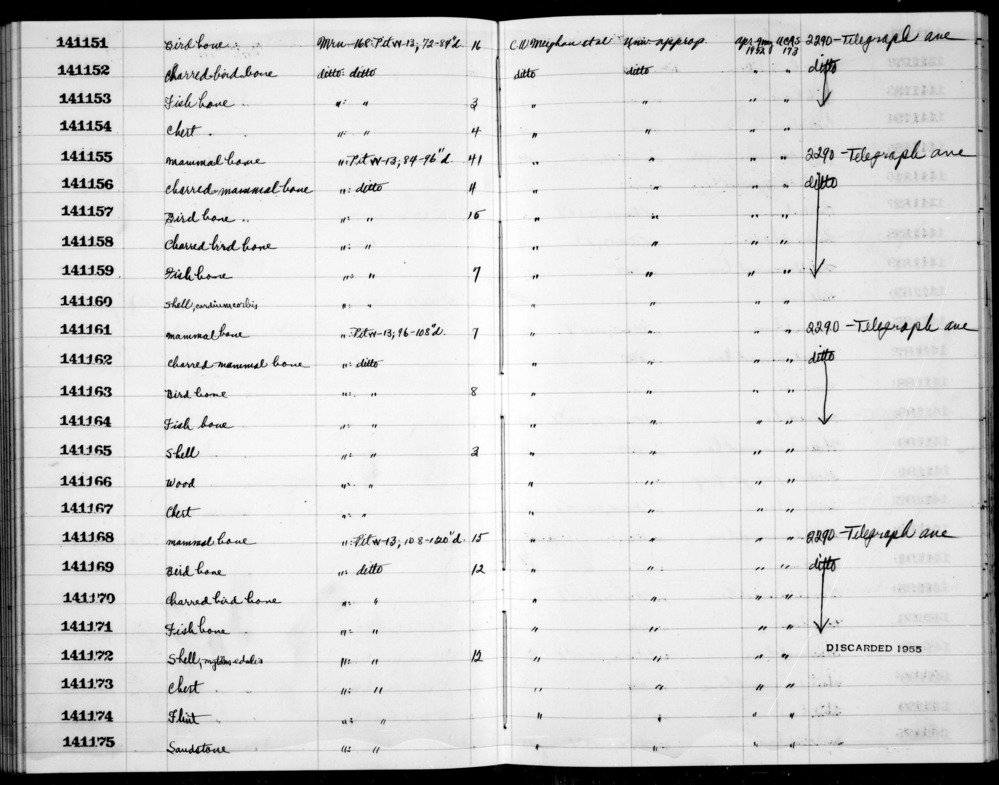 141151 Bird bone Mrn-168: Pit W-13; 72-84"d. 16 C W Meighan et al Univ. approp. Apr-May 1952 UCAS 173 2290-Telegraph ave
141152 Charred bird bone ditto: ditto ditto ditto " " ditto
141153 Fish bone ": " 2 " " " "
141154 Chert ": " 4 " " " "
141155 mammal bone ": Pit W-13; 84-96"d. 41 " " " " 2290-Telegraph ave
141156 Charred mammal bone ": ditto 4 " " " " ditto
141157 Bird bone ": " 15 " " " "
141158 Charred bird bone ": " " " " "
141159 Fish bone ": " 7 " " " "
141160 Shell, cardium corbis ": " " " " "
141161 mammal bone ": Pit W-13; 96-108"d. 7 " " " " 2290-Telegraph ave
141162 Charred mammal bone ": ditto " " " " ditto
141163 Bird bone ": " 8 " " " "
141164 Fish bone ": " " " " "
141165 Shell ": " 2 " " " "
141166 Wood ": " " " " "
141167 Chert ": " " " " "
141168 mammal bone ": Pit W-13; 108-120"d. 15 " " " " 2290-Telegraph ave
141169 Bird bone ": ditto 12 " " " " ditto
141170 Charred bird bone ": " " " " "
141171 Fish bone ": " " " " "
141172 Shell, mytilus edulis ": " 12 " " " " DISCARDED 1955
141173 Chert ": " " " " "
141174 Flint ": " " " " "
141175 Sandstone ": " " " " "